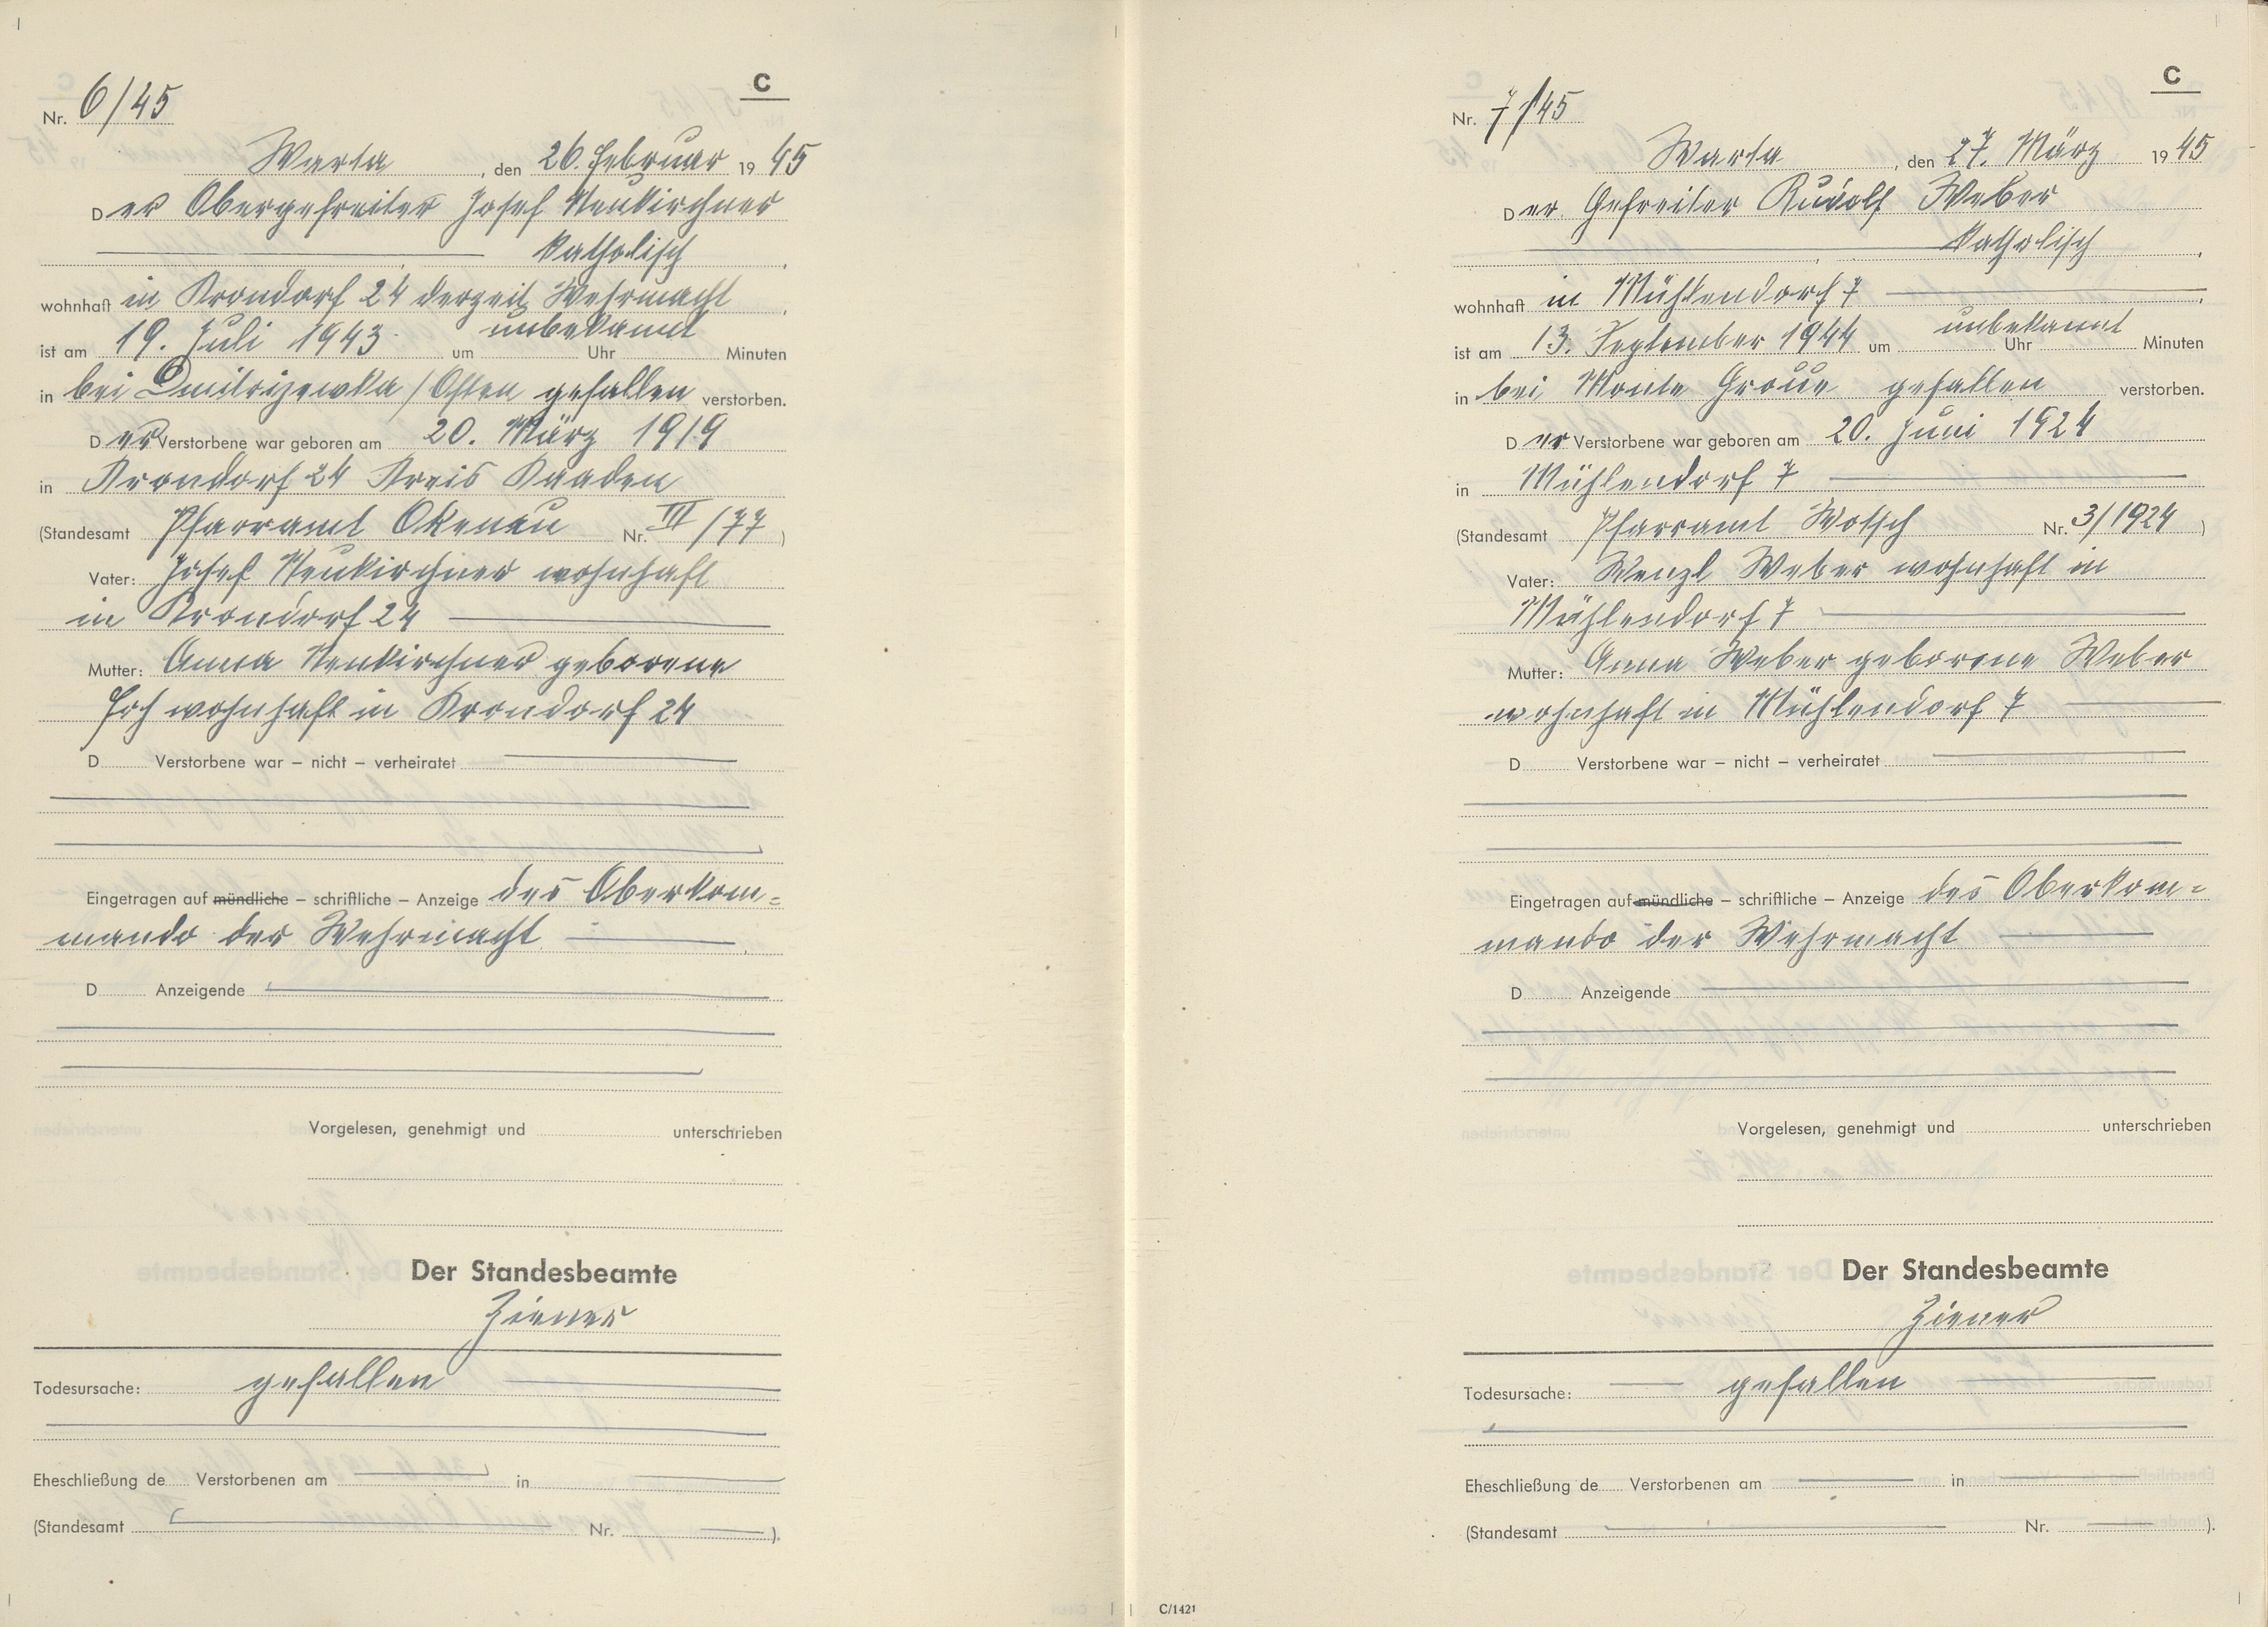 C
Nr. 6/45
Warta, den 26. Februar 1945
Der Obergefreiter Josef Neukirchner
katholisch,
wohnhaft in Krondorf 24 derzeit Wehrmacht,
ist am 19. Juli 1943 um unbekannt Uhr Minuten
in bei Dmitrijewka / Osten gefallen verstorben.
Der Verstorbene war geboren am 20. März 1919
in Krondorf 24 Kreis Kaaden
(Standesamt Pfarramt Okenau Nr. III/77)
Vater: Josef Neukirchner wohnhaft
in Krondorf 24
Mutter: Anna Neukirchner geborene
wohnhaft in Krondorf 24
D Verstorbene war – nicht – verheiratet
Eingetragen auf mündliche – schriftliche – Anzeige des Oberkom=
mando der Wehrmacht.
D Anzeigende
Vorgelesen, genehmigt und unterschrieben
Der Standesbeamte
Ziener
Todesursache: gefallen
Eheschließung de Verstorbenen am in
(Standesamt Nr. ).
C
Nr. 7/45
Warta, den 27. März 1945
Der Gefreiter Rudolf Weber
, katholisch,
wohnhaft in Mühlendorf 7,
ist am 13. September 1944 um unbekannt Uhr Minuten
in bei Monte gefallen verstorben.
Der Verstorbene war geboren am 20. Juni 1924
in Mühlendorf 7
(Standesamt Pfarramt Wotsch Nr. 3/1924)
Vater: Wenzl Weber wohnhaft in
Mühlendorf 7
Mutter: Anna Weber geborene Weber
wohnhaft in Mühlendorf 7
D Verstorbene war – nicht – verheiratet
Eingetragen auf mündliche – schriftliche – Anzeige des Oberkom=
mando der Wehrmacht
D Anzeigende
Vorgelesen, genehmigt und unterschrieben
Der Standesbeamte
Ziener
Todesursache: gefallen
Eheschließung de Verstorbenen am in
(Standesamt Nr. ).
C/1421